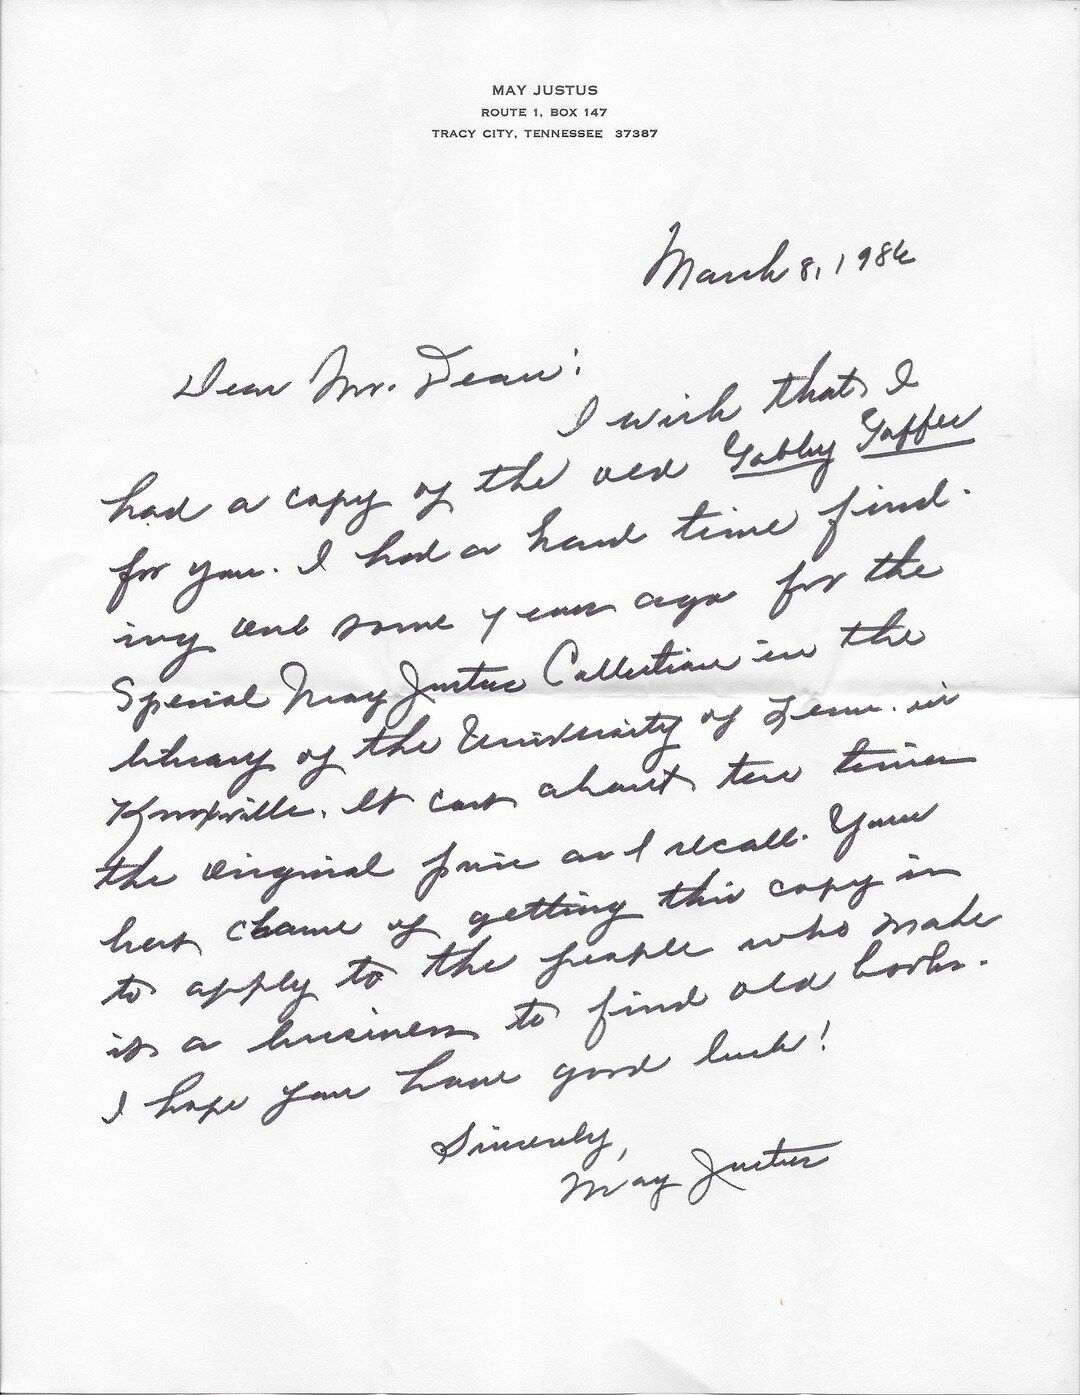 MAY JUSTUS
ROUTE 1, BOX 147
TRACY CITY, TENNESSEE 37387
March 8, 1986
Dear Mr. Dean:
I wish that I
had a copy of the old Gabby Gaffer
for you. I had a hard time find-
ing one some years ago for the
Special May Justus Collection in the
library of the University of Tenn. in
Knoxville. It cost about ten times
the original price as I recall. Your
best chance of getting this copy is
to apply to the people who made
it a business to find old books.
I hope you have good luck!
Sincerely,
May Justus